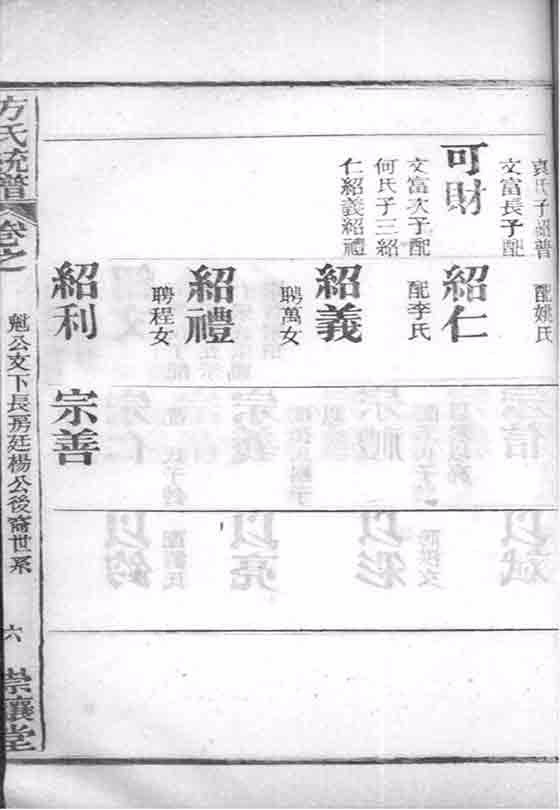 文富長子配
袁氏子紹普
可財
文富次子配
何氏子三紹
仁紹義紹禮
配姚氏
紹仁
配李氏
紹義
聘萬女
紹禮
聘程女
紹利
宗善
方氏統譜
卷之
魁公文下長房廷楊公後裔世系
六
崇讓堂